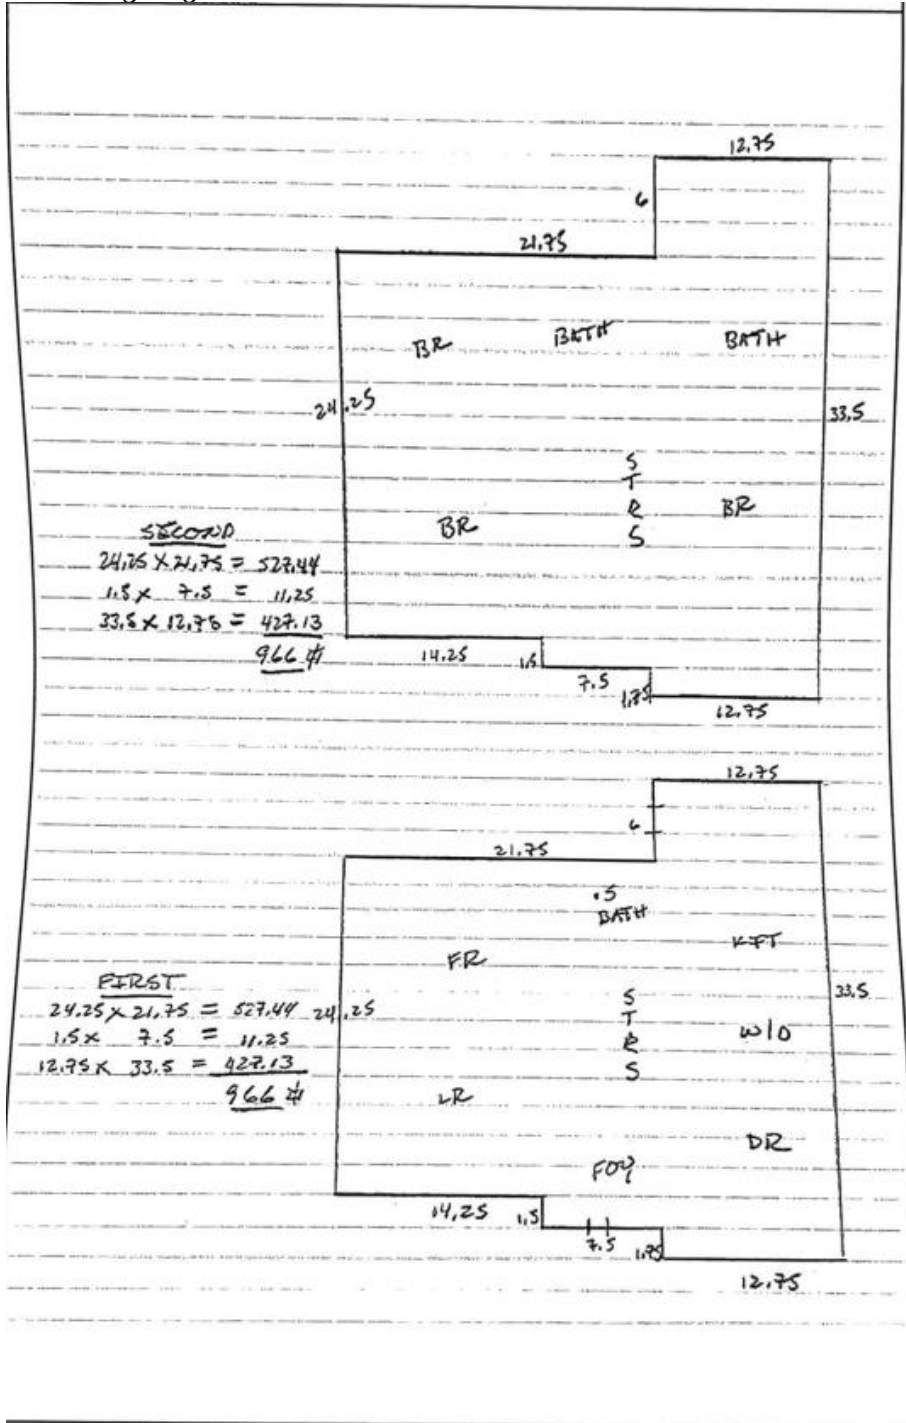 12.75
6
21.75
BR BATH BATH
24.25
33.5
S
T
R
S
BR
BR
SECOND
24.25 X 21.75 = 527.44
1.5 X 7.5 = 11.25
33.5 X 12.75 = 427.13
966 #
14.25
1.5
7.5
1.75
12.75
12.75
6
21.75
.5
BATH
KIT
FR
FIRST
24.25 X 21.75 = 527.44
1.5 X 7.5 = 11.25
12.75 X 33.5 = 427.13
966 #
24.25
33.5
S
T
R
S
W/O
LR
DR
FOY
14.25
1.5
7.5
1.75
12.75